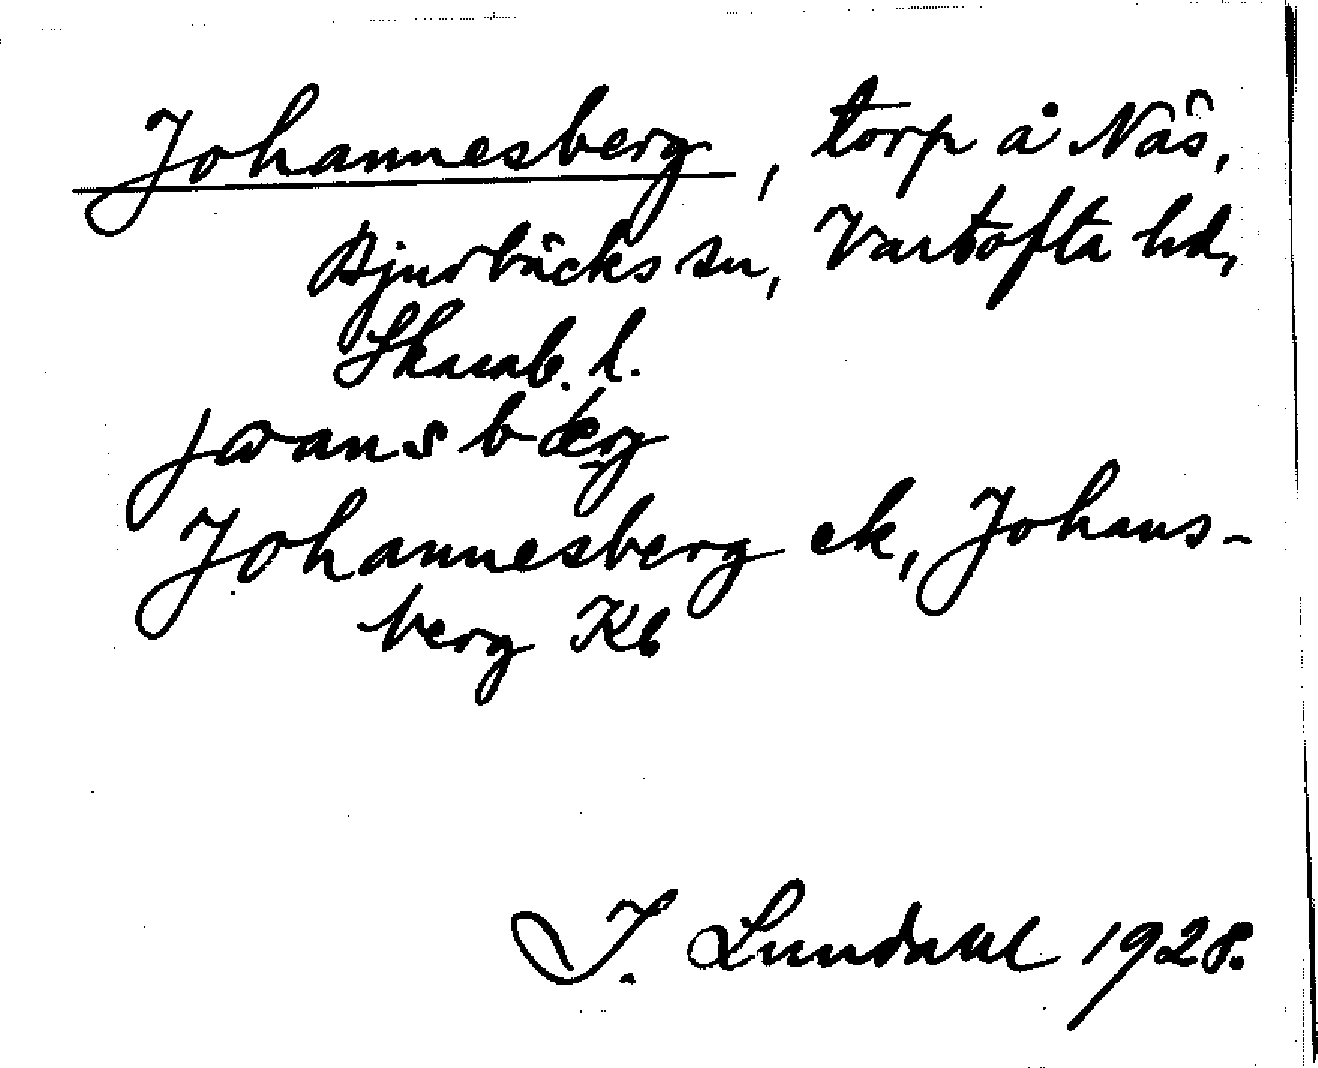 Johannesberg, torp å Näs,
Bjurbäcks sn, Vartofta hd,
Skarab. l.
Johannesberg ek, Johans-
berg Kb
I. Lundahl 1928.